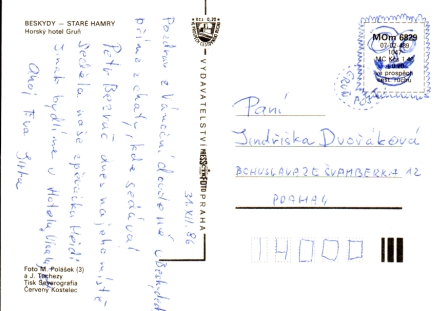 BESKYDY — STARÉ HAMRY
Horský hotel Gruň
Pozdrav z vánoční dovolené v Beskydech
přímo z chaty, kde sedával
Petr Bezruč dnes na jeho místě
seděla naše zpěvačka Heidi
Jinak bydlíme v Hotelu
Ahoj Eva
31.XII.86
Foto M. Polášek (3)
a J. Tuchezy
Tisk Severografia
Červený Kostelec
VYDAVATELSTVÍ PRESSFOTO PRAHA
MOm 6829
Paní
Jindřiška Dvořáková
BOHUSLAVA ZE ŠVAMBERKA 12
PRAHA 4
14000